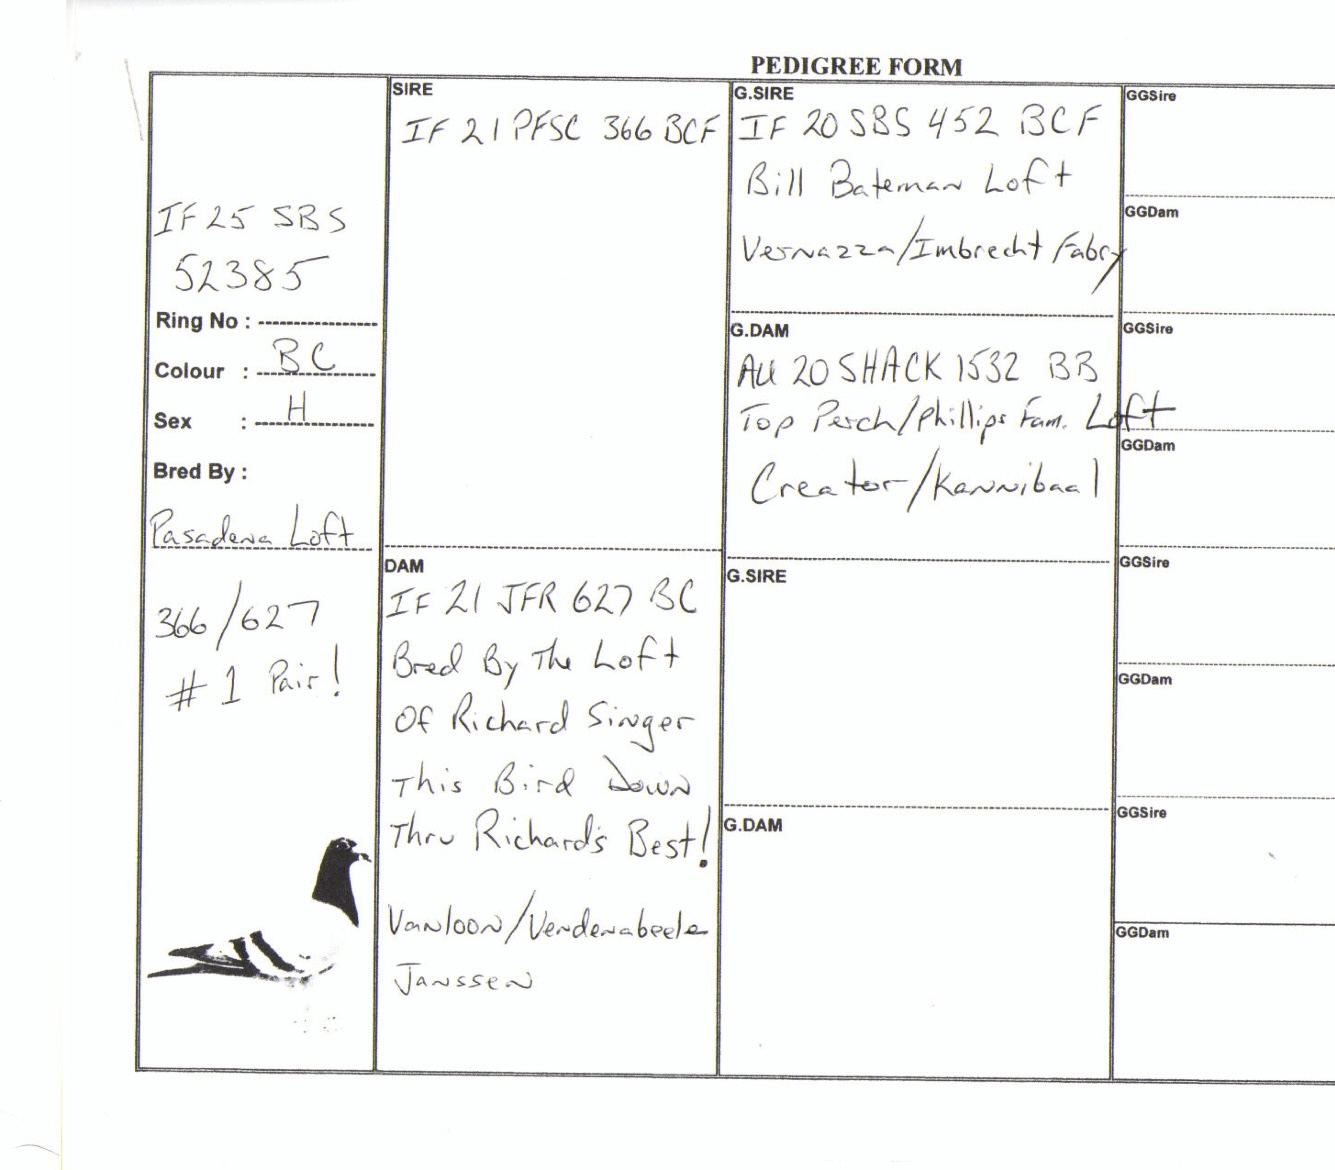 PEDIGREE FORM
IF 25 SBS
52385
Ring No :
Colour : BC
Sex : H
Bred By :
Pasadena Loft
366/627
# 1 Pair!
SIRE
IF 21 PFSC 366 BCF
DAM
IF 21 JFR 627 BC
Bred By The Loft
Of Richard Singer
This Bird Down
Thru Richard's Best!
Vanloon/Vendenabeele
Janssen
G.SIRE
IF 20 SBS 452 BCF
Bill Bateman Loft
Vernazza/Imbrecht Fabry
G.DAM
AU 20 SHACK 1532 BB
Top Perch/Phillips Fam. Loft
Creator/Kannibaal
G.SIRE
G.DAM
GGSire
GGDam
GGSire
GGDam
GGSire
GGDam
GGSire
GGDam